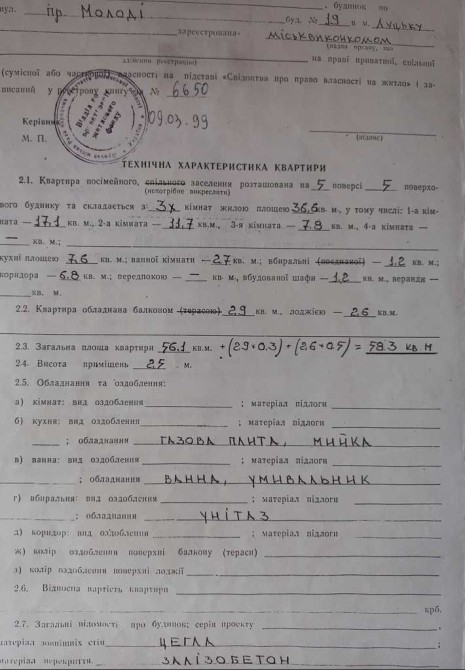 вул. пр. Молоді , будинок по
буд. № 19 в м. Луцьку
зареєстрована міськвиконкомом
(назва органу, що
здійснив реєстрацію) на праві приватної, спільної
(сумісної або часткової) власності на підставі «Свідоцтва про право власності на житло» і за-
писаний у реєстрову книгу № 6650
Керівник 09.03.99
М. П. (підпис)
ТЕХНІЧНА ХАРАКТЕРИСТИКА КВАРТИРИ
2.1. Квартира посімейного, спільного заселення розташована на 5 поверсі 5 поверхо-
(непотрібне викреслити)
вого будинку та складається з 3х кімнат жилою площею 36,6 кв. м., у тому числі: 1-а кім-
ната — 17,1 кв. м., 2-а кімната — 11,7 кв.м., 3-я кімната — 7.8 кв. м., 4-а кімната —
— кв. м.;
кухні площею 7.6 кв. м.; ванної кімнати — 2.7 кв. м.; вбиральні (поєднаної) — 1,2 кв. м.;
коридора — 6.8 кв. м.; передпокою — — кв. м., вбудованої шафи — 1.2 кв. м., веранди —
кв. м.
2.2. Квартира обладнана балконом (терасою) 2.9 кв. м., лоджією — 2.6 кв.м.
2.3. Загальна площа квартири 56.1 кв.м. + (2.9×0.3) + (2.6×0.5) = 58.3 кв.м
2.4. Висота приміщень 2.5 м.
2.5. Обладнання та оздоблення:
а) кімнат: вид оздоблення ; матеріал підлоги
б) кухня: вид оздоблення ; матеріал підлоги
; обладнання ГАЗОВА ПЛИТА, МИЙКА
в) ванна: вид оздоблення ; матеріал підлоги
; обладнання ВАННА, УМИВАЛЬНИК
г) вбиральня: вид оздоблення ; матеріал підлоги
; обладнання УНІТАЗ
д) коридор: вид оздоблення ; матеріал підлоги
ж) колір оздоблення поверхні балкону (тераси)
з) колір оздоблення поверхні лоджії
2.6. Відносна вартість квартири
крб.
2.7. Загальні відомості про будинок; серія проекту
матеріал зовнішніх стін ЦЕГЛА
матеріал перекриття ЗАЛІЗОБЕТОН